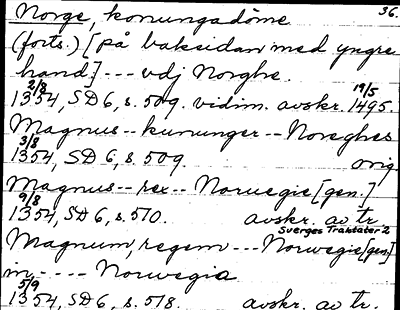 Norge, konungadöme 36.
(forts.) [på baksidan med yngre
hand:] --- vdj Norghe.
2/8 19/5
1354, SD 6, s. 509. vidim. avskr. 1495.
Magnus -- kununger -- Noreghes
3/8
1354, SD 6, s. 509. orig.
Magnus -- rex -- Norwegie [gen.]
9/8
1354, SD 6, s. 510. avskr. av tr.
Sverges Traktater 2
Magnum, regem --- Norwegie [gen.]
in ---- Norwegia
5/9
1354, SD 6, s. 518. avskr. av tr.